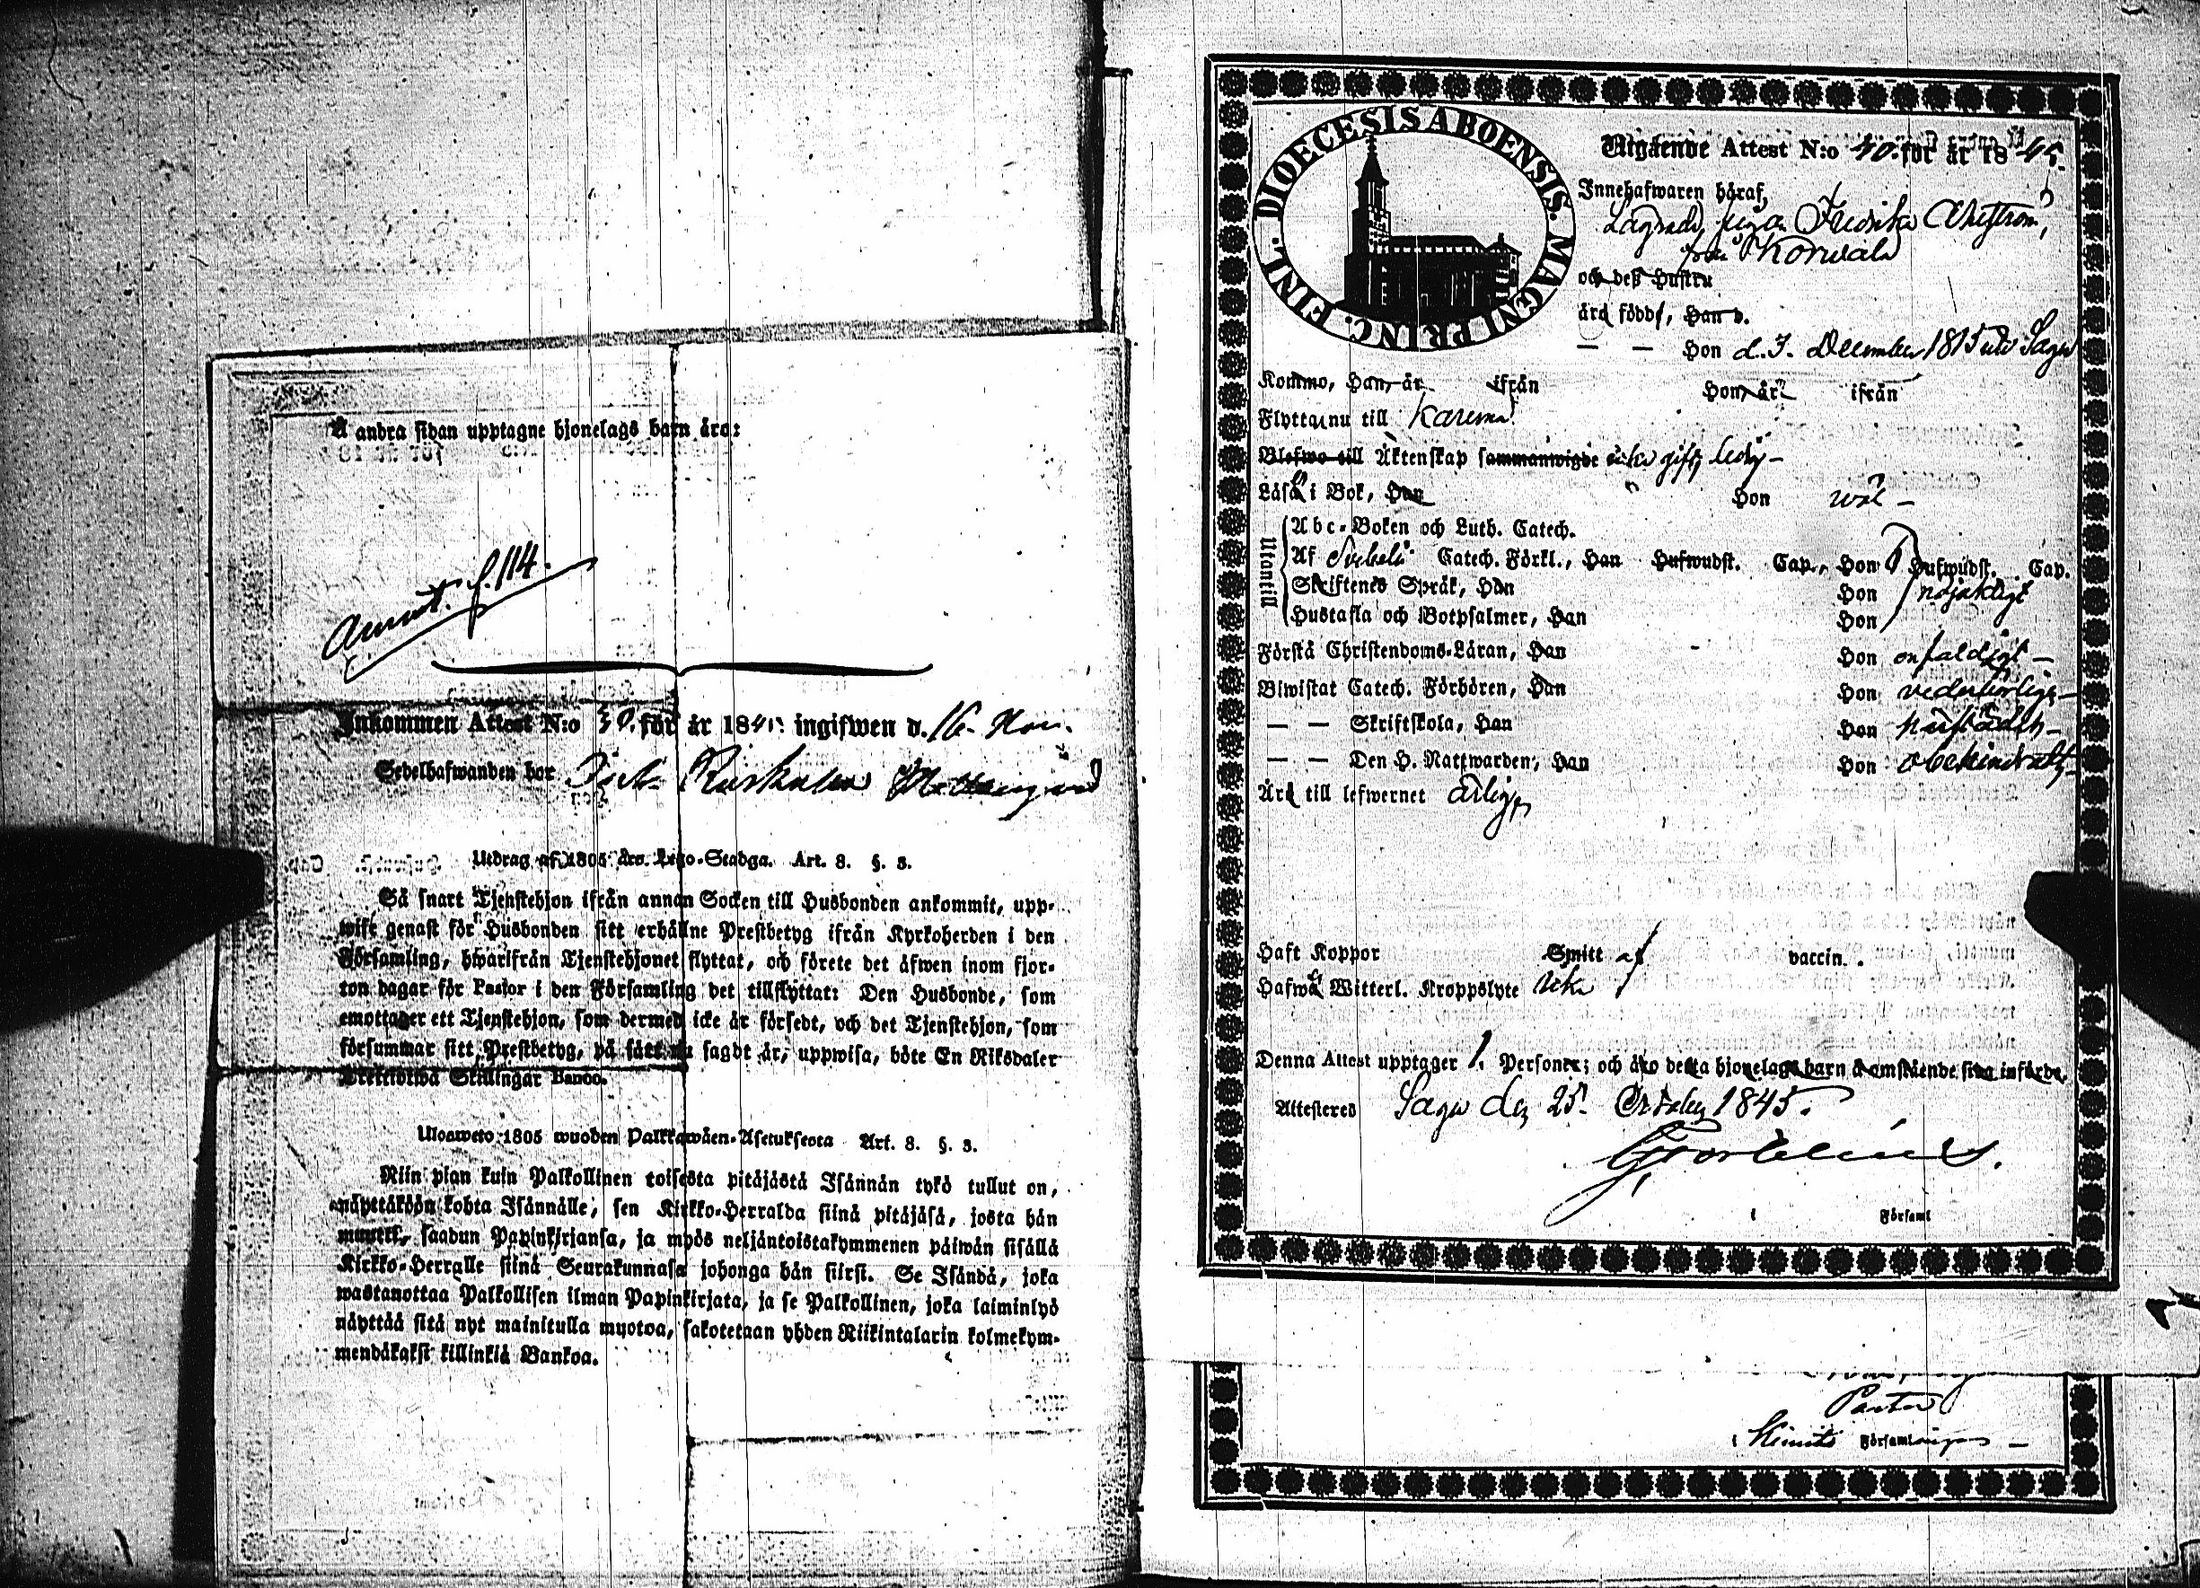 Å andra sidan upptagne hjonelags barn äro:
Annot. f. 114.
Inkommen Attest N:o 30. för år 1845. ingifwen d. 16 Nov.
Sedelhafwanden bor
Utdrag af 1805 års Lego-Stadga. Art. 8. §. 3.
Så snart Tjenstehjon ifrån annan Socken till Husbonden ankommit, upp-
wise genast för Husbonden sitt erhållne Prestbetyg ifrån Kyrkoherden i den
Församling, hwarifrån Tjenstehjonet flyttat, och förete det äfwen inom fjor-
ton dagar för Pastor i den Församling det tillflyttat: Den Husbonde, som
emottager ett Tjenstehjon, som dermed icke är försedt, och det Tjenstehjon, som
försummar sitt Prestbetyg, på sätt nu sagdt är, uppwisa, böte En Riksdaler
Trettiotwå Skillingar Banco.
Ulosweto 1805 wuoden Palkkawäen-Asetuksesta Art. 8. §. 3.
Niin pian kuin Palkollinen toisesta pitäjästä Isännän tykö tullut on,
näyttäköön kohta Isännälle, sen Kirkko-Herralda siinä pitäjäsä, josta hän
muutti, saadun Papinkirjansa, ja myös neljäntoistakymmenen päiwän sisällä
Kirkko-Herralle siinä Seurakunnasa johonga hän siirsi. Se Isändä, joka
wastanottaa Palkollisen ilman Papinkirjata, ja se Palkollinen, joka laiminlyö
näyttää sitä nyt mainitulla muotoa, sakotetaan yhden Riikintalarin kolmekym-
mendäkaksi killinkiä Bankoa.
DIOECESIS ABOENSIS. MAGNI PRINC. FINL.
Utgående Attest N:o 40. för år 1845.
Innehafwaren häraf,
Lagstads pigan Fredrika
från Korwala
och deß Hustru
ärd född, Han d.
— — Hon d. 3. December 1815 uti Sagu
Kommo, Han, år ifrån Hon, år ifrån
Flyttar nu till Karuna
Blefwo till Äktenskap sammanwigde icke gift, ledig –
Läsa i Bok, Han Hon wäl –
Utantill
Abc-Boken och Luth. Catech.
Af Svebelii Catech. Förkl., Han Hufwudst. Cap., Hon Hufwudst. Cap.
Skriftenes Språk, Han Hon nöjaktigt
Hustafla och Botpsalmer, Han Hon
Förstå Christendoms-Läran, Han Hon enfaldigt –
Biwistat Catech. Förhören, Han Hon vederbörligen –
— — Skriftskola, Han Hon
— — Den H. Nattwarden, Han Hon obehindradt –
Ärd till lefwernet ärlig,
Haft Koppor Smitt af vaccin.
Hafwa Witterl. Kroppslyte Icke
Denna Attest upptager 1. Personer; och äro detta hjonelags barn å omstående sida införde,
Attesteres Sagu den 25. October 1845.
i Församl
Pastor
i Kimito Församlingen –